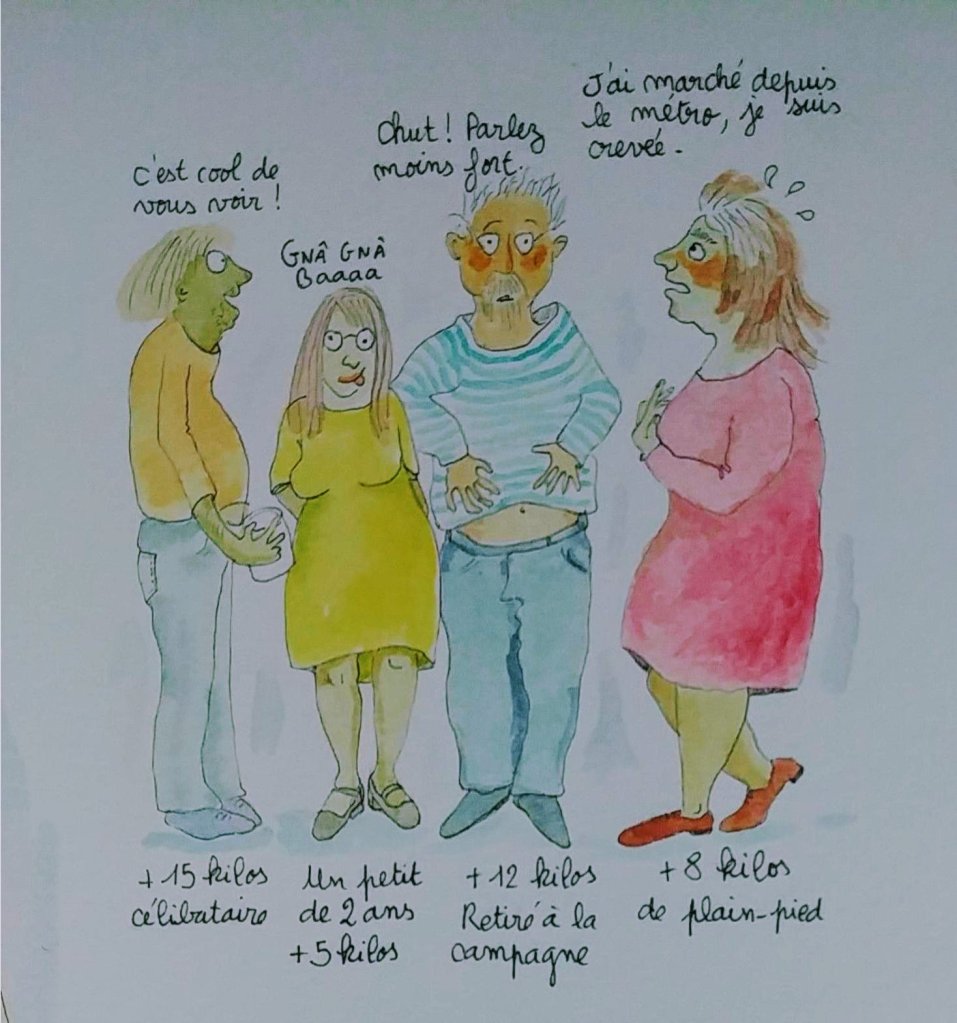 c'est cool de
vous voir !
GNÂ GNÂ
Baaaa
Chut ! Parlez
moins fort.
J'ai marché depuis
le métro, je suis
crevée.
+15 kilos
célibataire
Un petit
de 2 ans
+5 kilos
+12 kilos
Retiré à la
campagne
+8 kilos
de plain-pied